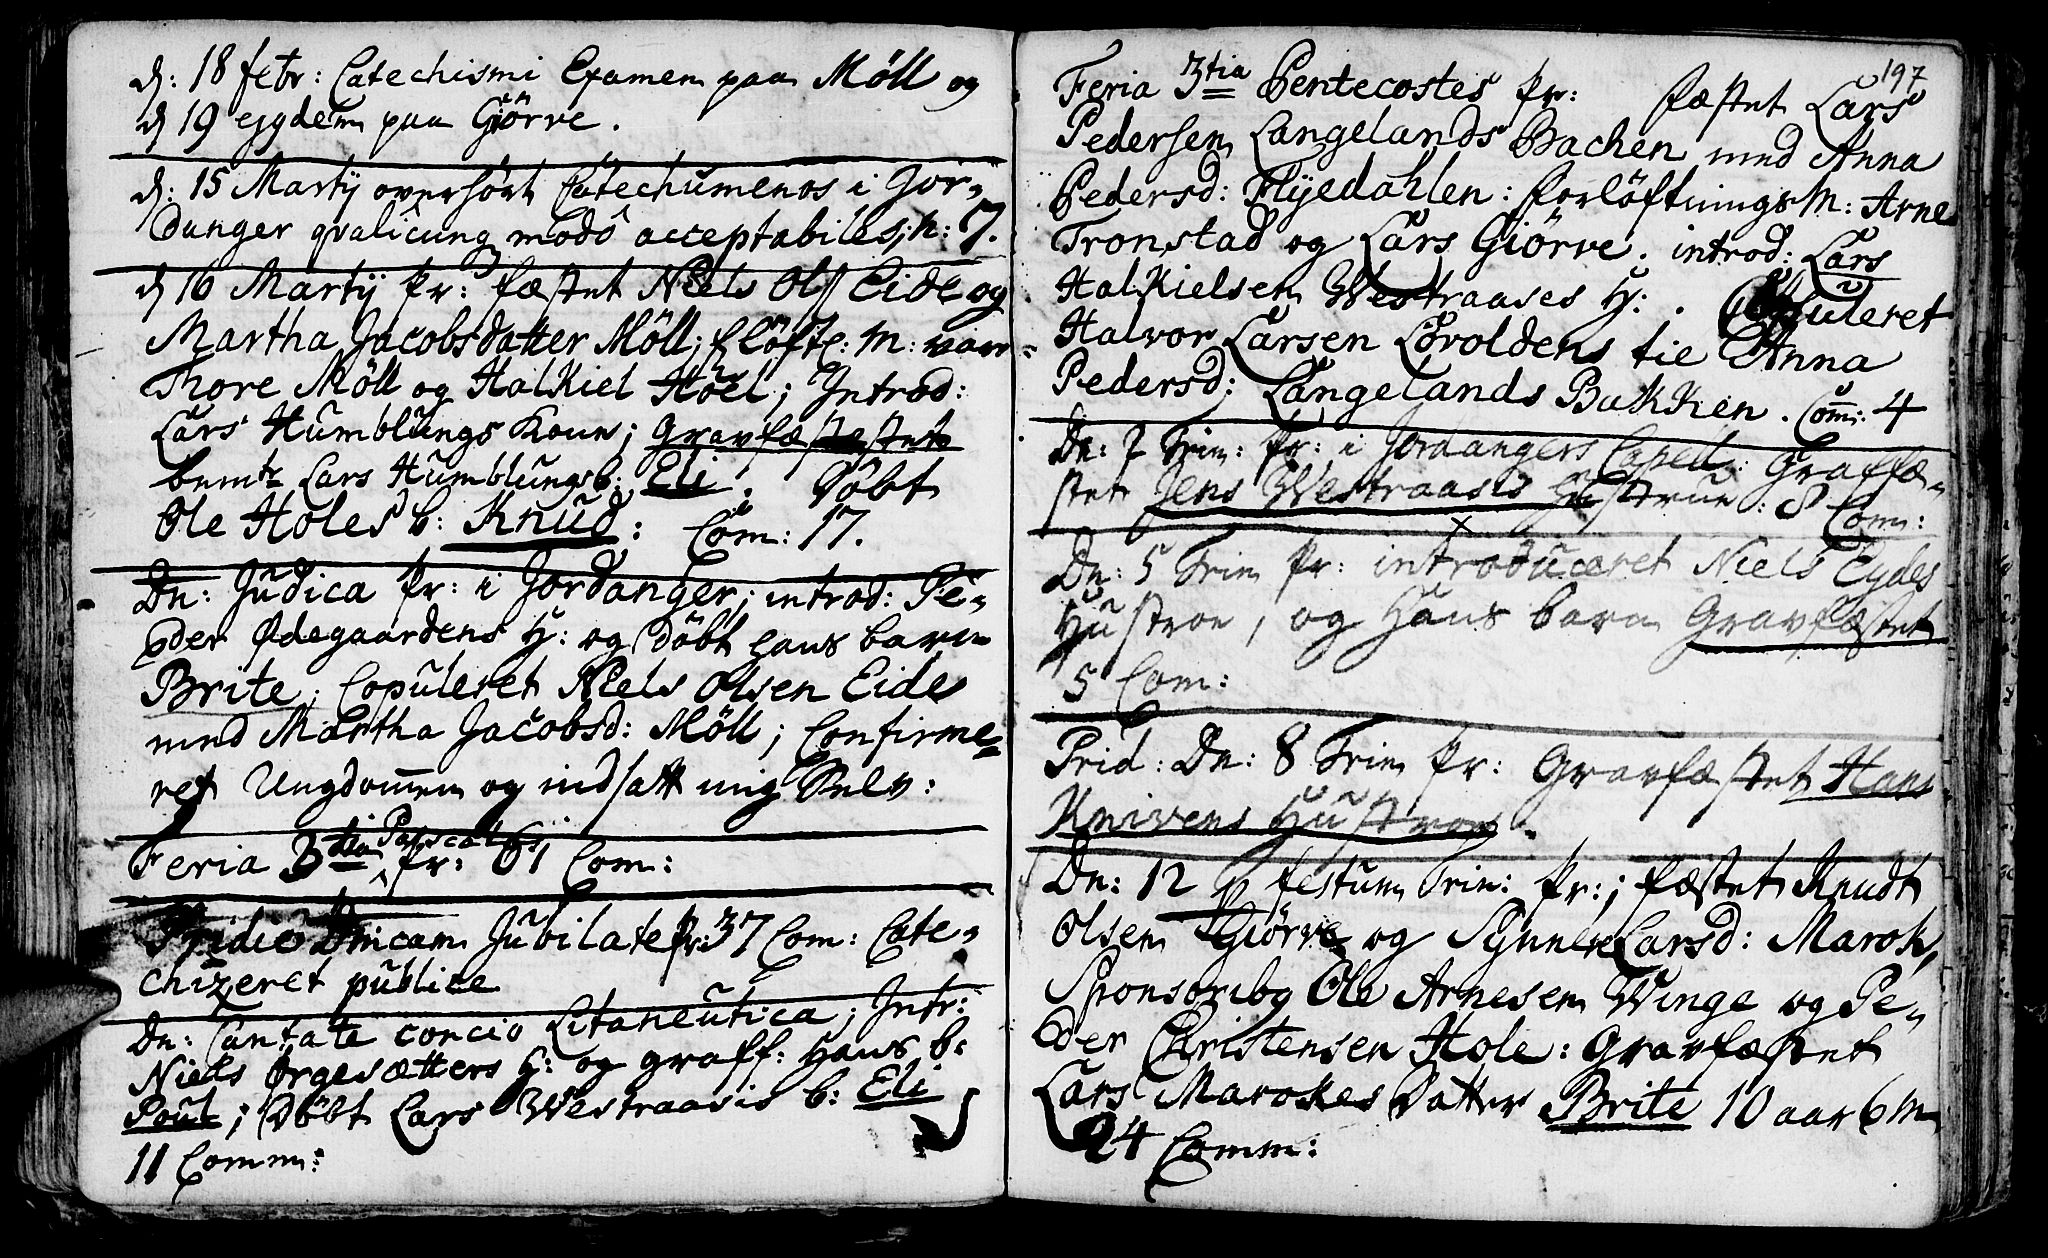 d: 18 febr: Catechismi Examen paa Möll og
d 19 ejgdem paa Giörve.
d: 15 Martij overhört Catechumenos i Jor-
danger qvalicunq modo acceptabiles; n: 7.
d 16 Martij Pr: fæstet Niels Ols Eide og
Martha Jacobsdatter Möll; flöftn: M: var
Thore Möll og Halkiel Höel; Introd:
Lars Humblungs Kone; Gravfæstestet
bemte Lars Humblungs b: Eli. Döbt
Ole Holes b: Knud: Com: 17.
Dn: Judica Pr: i Jordanger; introd: Pe-
der Ødegaardens H: og Döbt hans barn
Brite; Copuleret Niels Olsen Eide
med Martha Jacobsd: Möll; Confirme-
ret Ungdommen og indsatt mig Selv:
Feria 3tia Pascatos Pr: 61 Com:
Pridie Dnicam Jubilate Pr: 37 Com: Cate-
chizeret publice
Dn: Cantate concio Litaneutica; Intr:
Niels Ørgesætters H: og graff: Hans b:
Poul; Döbt Lars Westraasis b: Eli
11 Comm:
197
Feria 3tia Pentecostes Pr: fæstet Lars
Pedersen Langelands Bachen med Anna
Pedersd: Flyedahlen: forlöftnings M: Arne
Tronstad og Lars Giörve. introd: Lars
Halkielsen Westraases H: . Copuleret
Halvor Larsen Lövoldens tie Anna
Pedersd: Langelands Bakken. Com: 4
Dn: 2 Trin: Pr: i Jordangers Capell: Graffæ-
stet Jens Westraasis Hustrue: 8 Com:
Dn: 5 Trin Pr: introduceret Niels Eydes
Hustroe, og Hans barn Gravfæstet
5 Com:
Prid: Dn: 8 Trin Pr: Gravfæstet Hans
Knivens Hustroe.
Dn: 12 p festum Trin: Pr:; fæstet Knudt
Olsen Giörve og Synneve Larsd: Marok,
Sponsoriby Ole Arnesen Winge og Pe-
der Christensen Hole: Gravfæstet
Lars Marokes Datter Brite 10 aar 6 m
24 Comm: